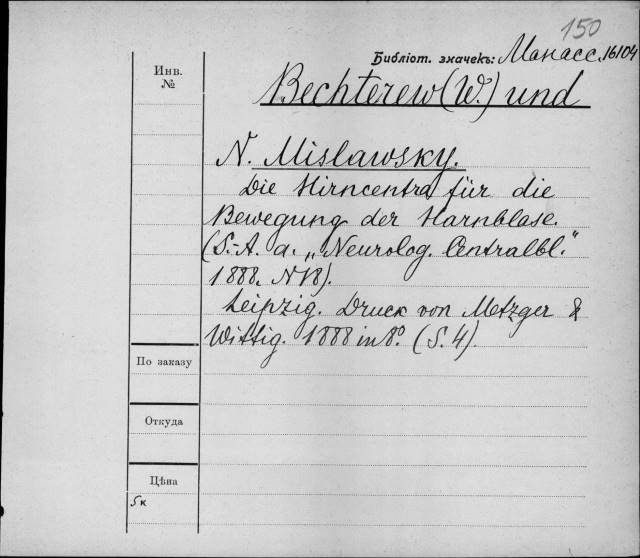 150
Библіот. значекъ: Манасс. 16104
Инв.
№
Bechterew (W.) und
N. Mislawsky.
Die Hirncentra für die
Bewegung der Harnblase.
(S.-A. a. „Neurolog. Centralbl."
1888. N18).
Leipzig. Druck von Metzger &
Wittig. 1888 in 8º. (S. 4).
По заказу
Откуда
Цѣна
5к